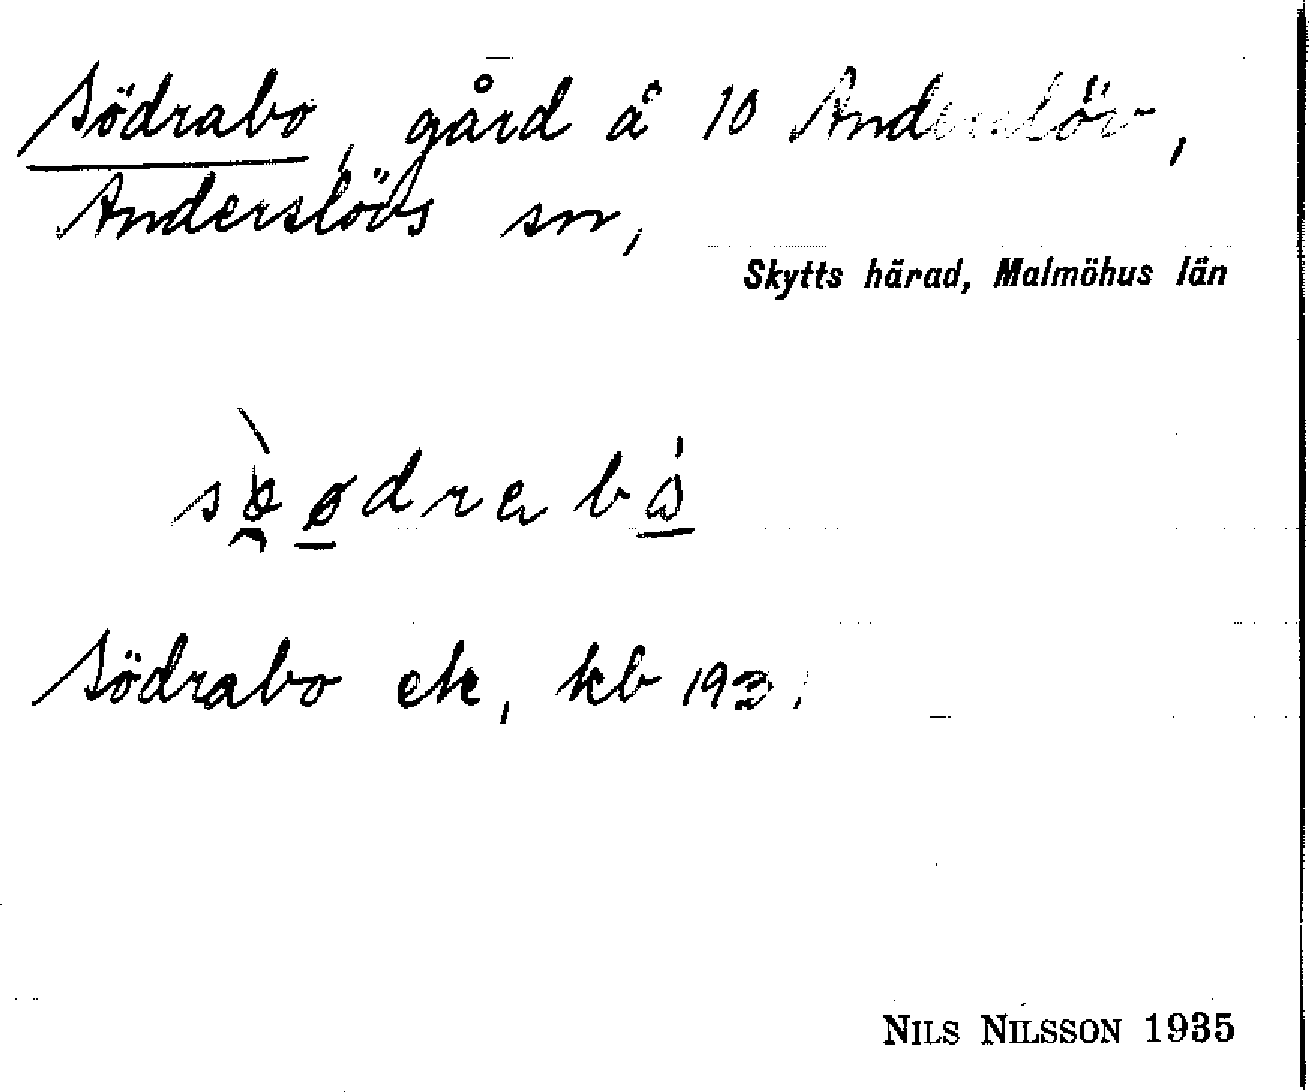 Södrabo, gård å 10 Anderslöv,
Anderslövs sn,
Skytts härad, Malmöhus län
Södrabo ek, kb 193
NILS NILSSON 1935